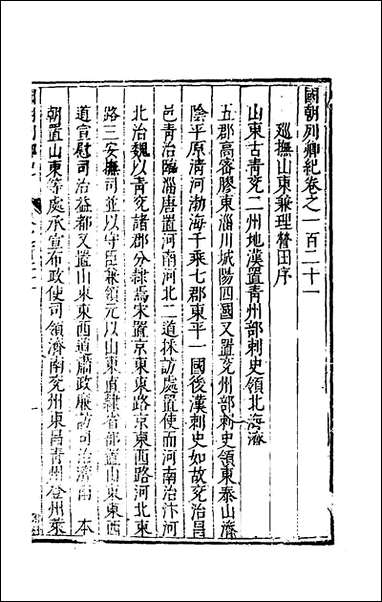 國朝列卿紀卷之一百二十一
廵撫山東兼理營田序
山東古青兖二州地漢置青州部刺史領北海濟
五郡高密膠東淄川城陽四國又置兖州部刺史領東泰山濟
陰平原清河渤海千乗七郡東平一國後漢刺史如故兖治昌
邑青治臨淄唐置河南河北二道採訪處置使而河南治汴河
北治魏以青兖諸郡分隷焉宋置京東東路京東西路河北東
路三安撫司並以守臣兼領元以山東直隷省部置山東東西
道宣慰司治益都又置山東東西道肅政廉訪司治濟南 本
朝置山東等處承宣布政使司領濟南兖州東昌青州登州萊